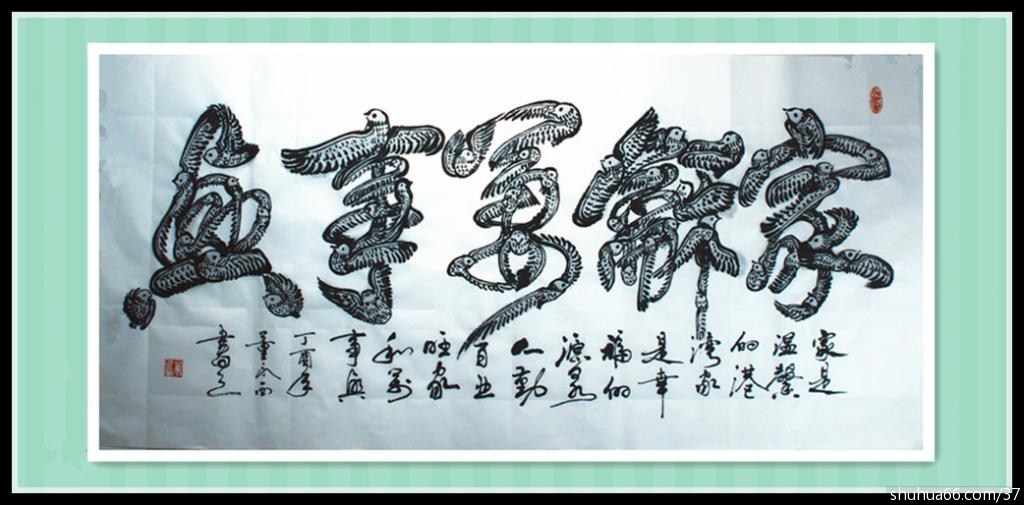 家龢萬事興
家是
温馨
的港
湾家
是幸
福的
源泉
人勤
百业
旺家
和萬
事興
丁酉年
shuhua66.com/37